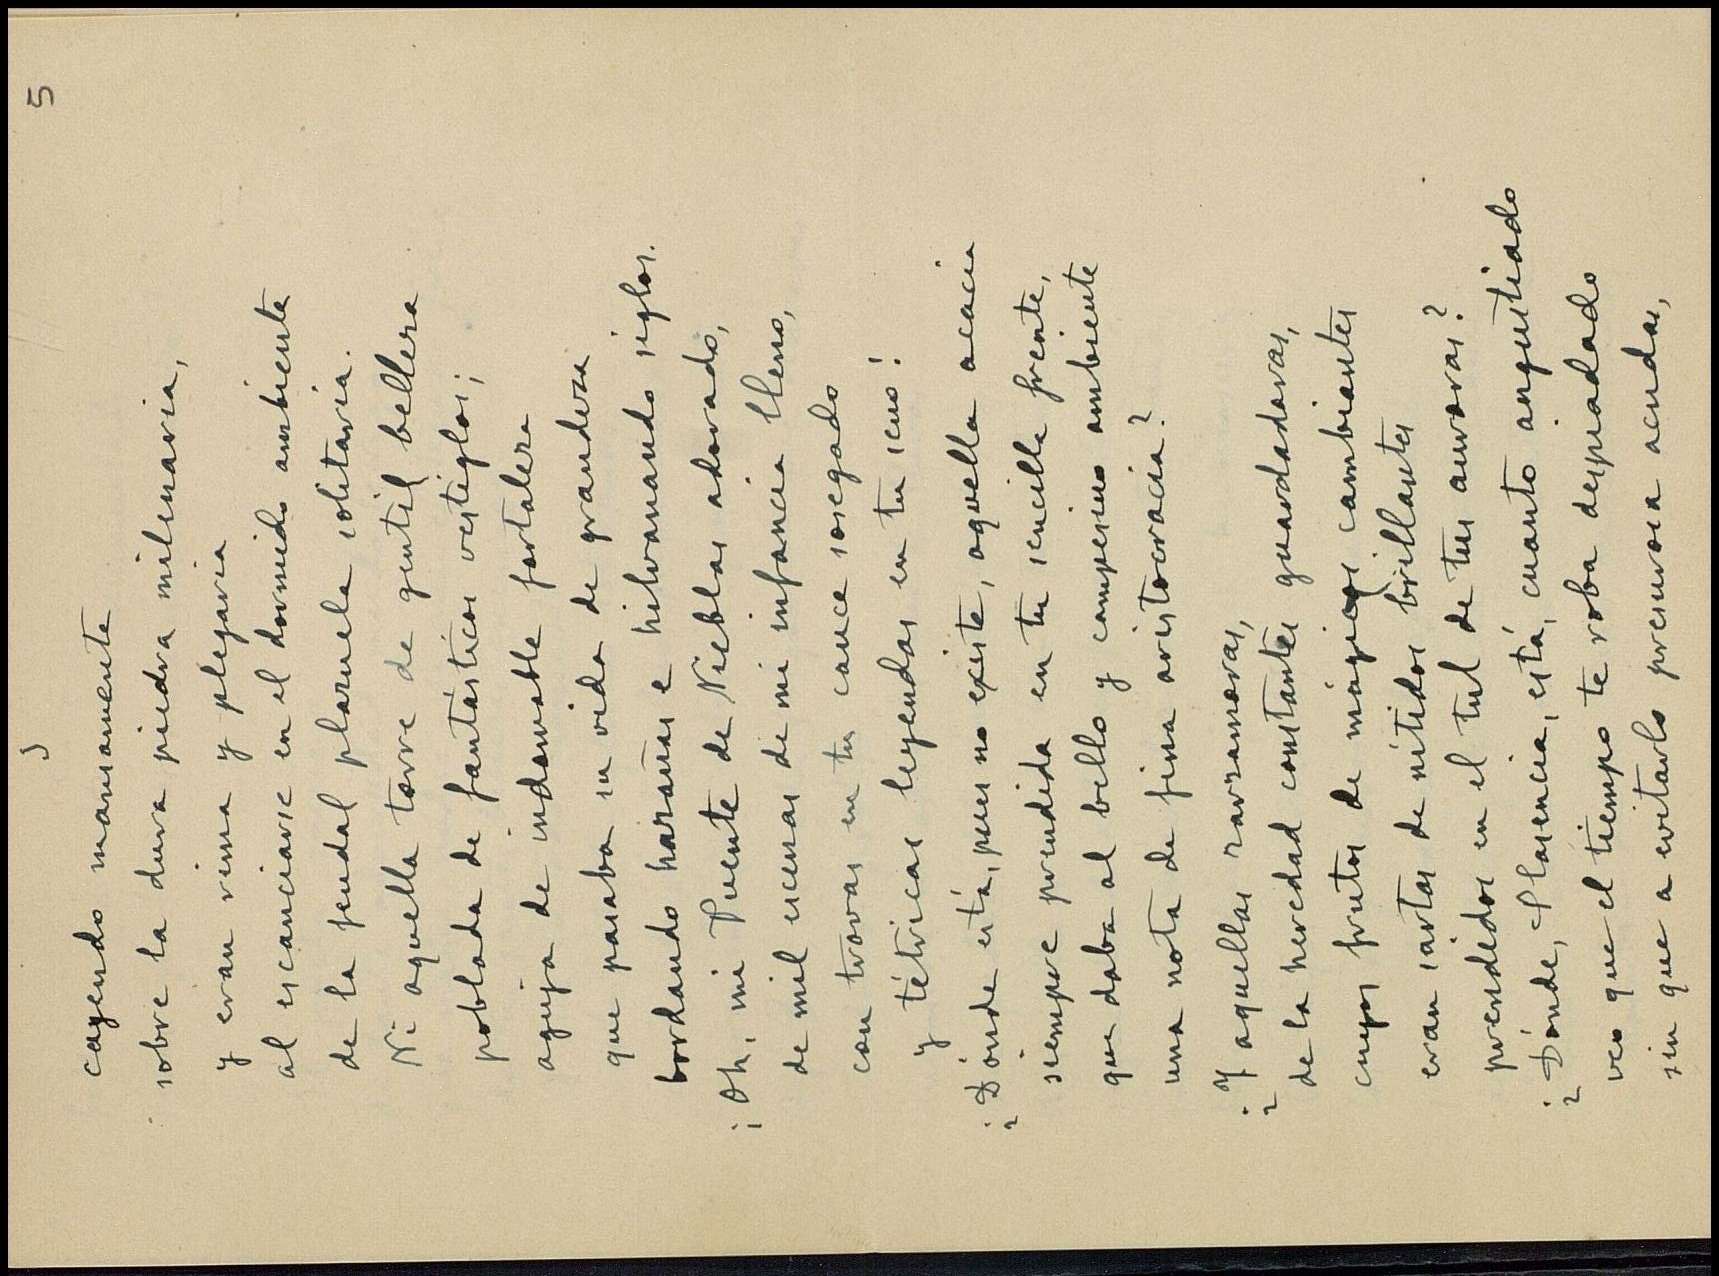 5
cayendo mansamente
sobre la dura piedra milenaria,
y eran rima y plegaria
al escanciarse en el dormido ambiente
de la feudal plazuela solitaria.
Ni aquella torre de gentil belleza
poblada de fantásticos vestiglos;
aguja de indomable fortaleza
que pasaba su vida de grandeza
bordando hazañas e hilvanando siglos.
¡Oh, mi Puente de Nieblas adorado,
de mil escenas de mi infancia lleno,
con trovas en tu cauce sosegado
y tétricas leyendas en tu seno!
¿Dónde está, pues no existe, aquella acacia
siempre prendida en tu sencilla frente,
que daba al bello y campesino ambiente
una nota de fina aristocracia?
¿Y aquellas zarzamoras,
de la heredad constantes guardadoras,
cuyos frutos de mágicos cambiantes
eran sartas de nítidos brillantes
prendidos en el tul de tus auroras?
¿Dónde, Plasencia, está, cuanto angustiado
veo que el tiempo te roba despiadado
sin que a evitarlo presurosa acudas,